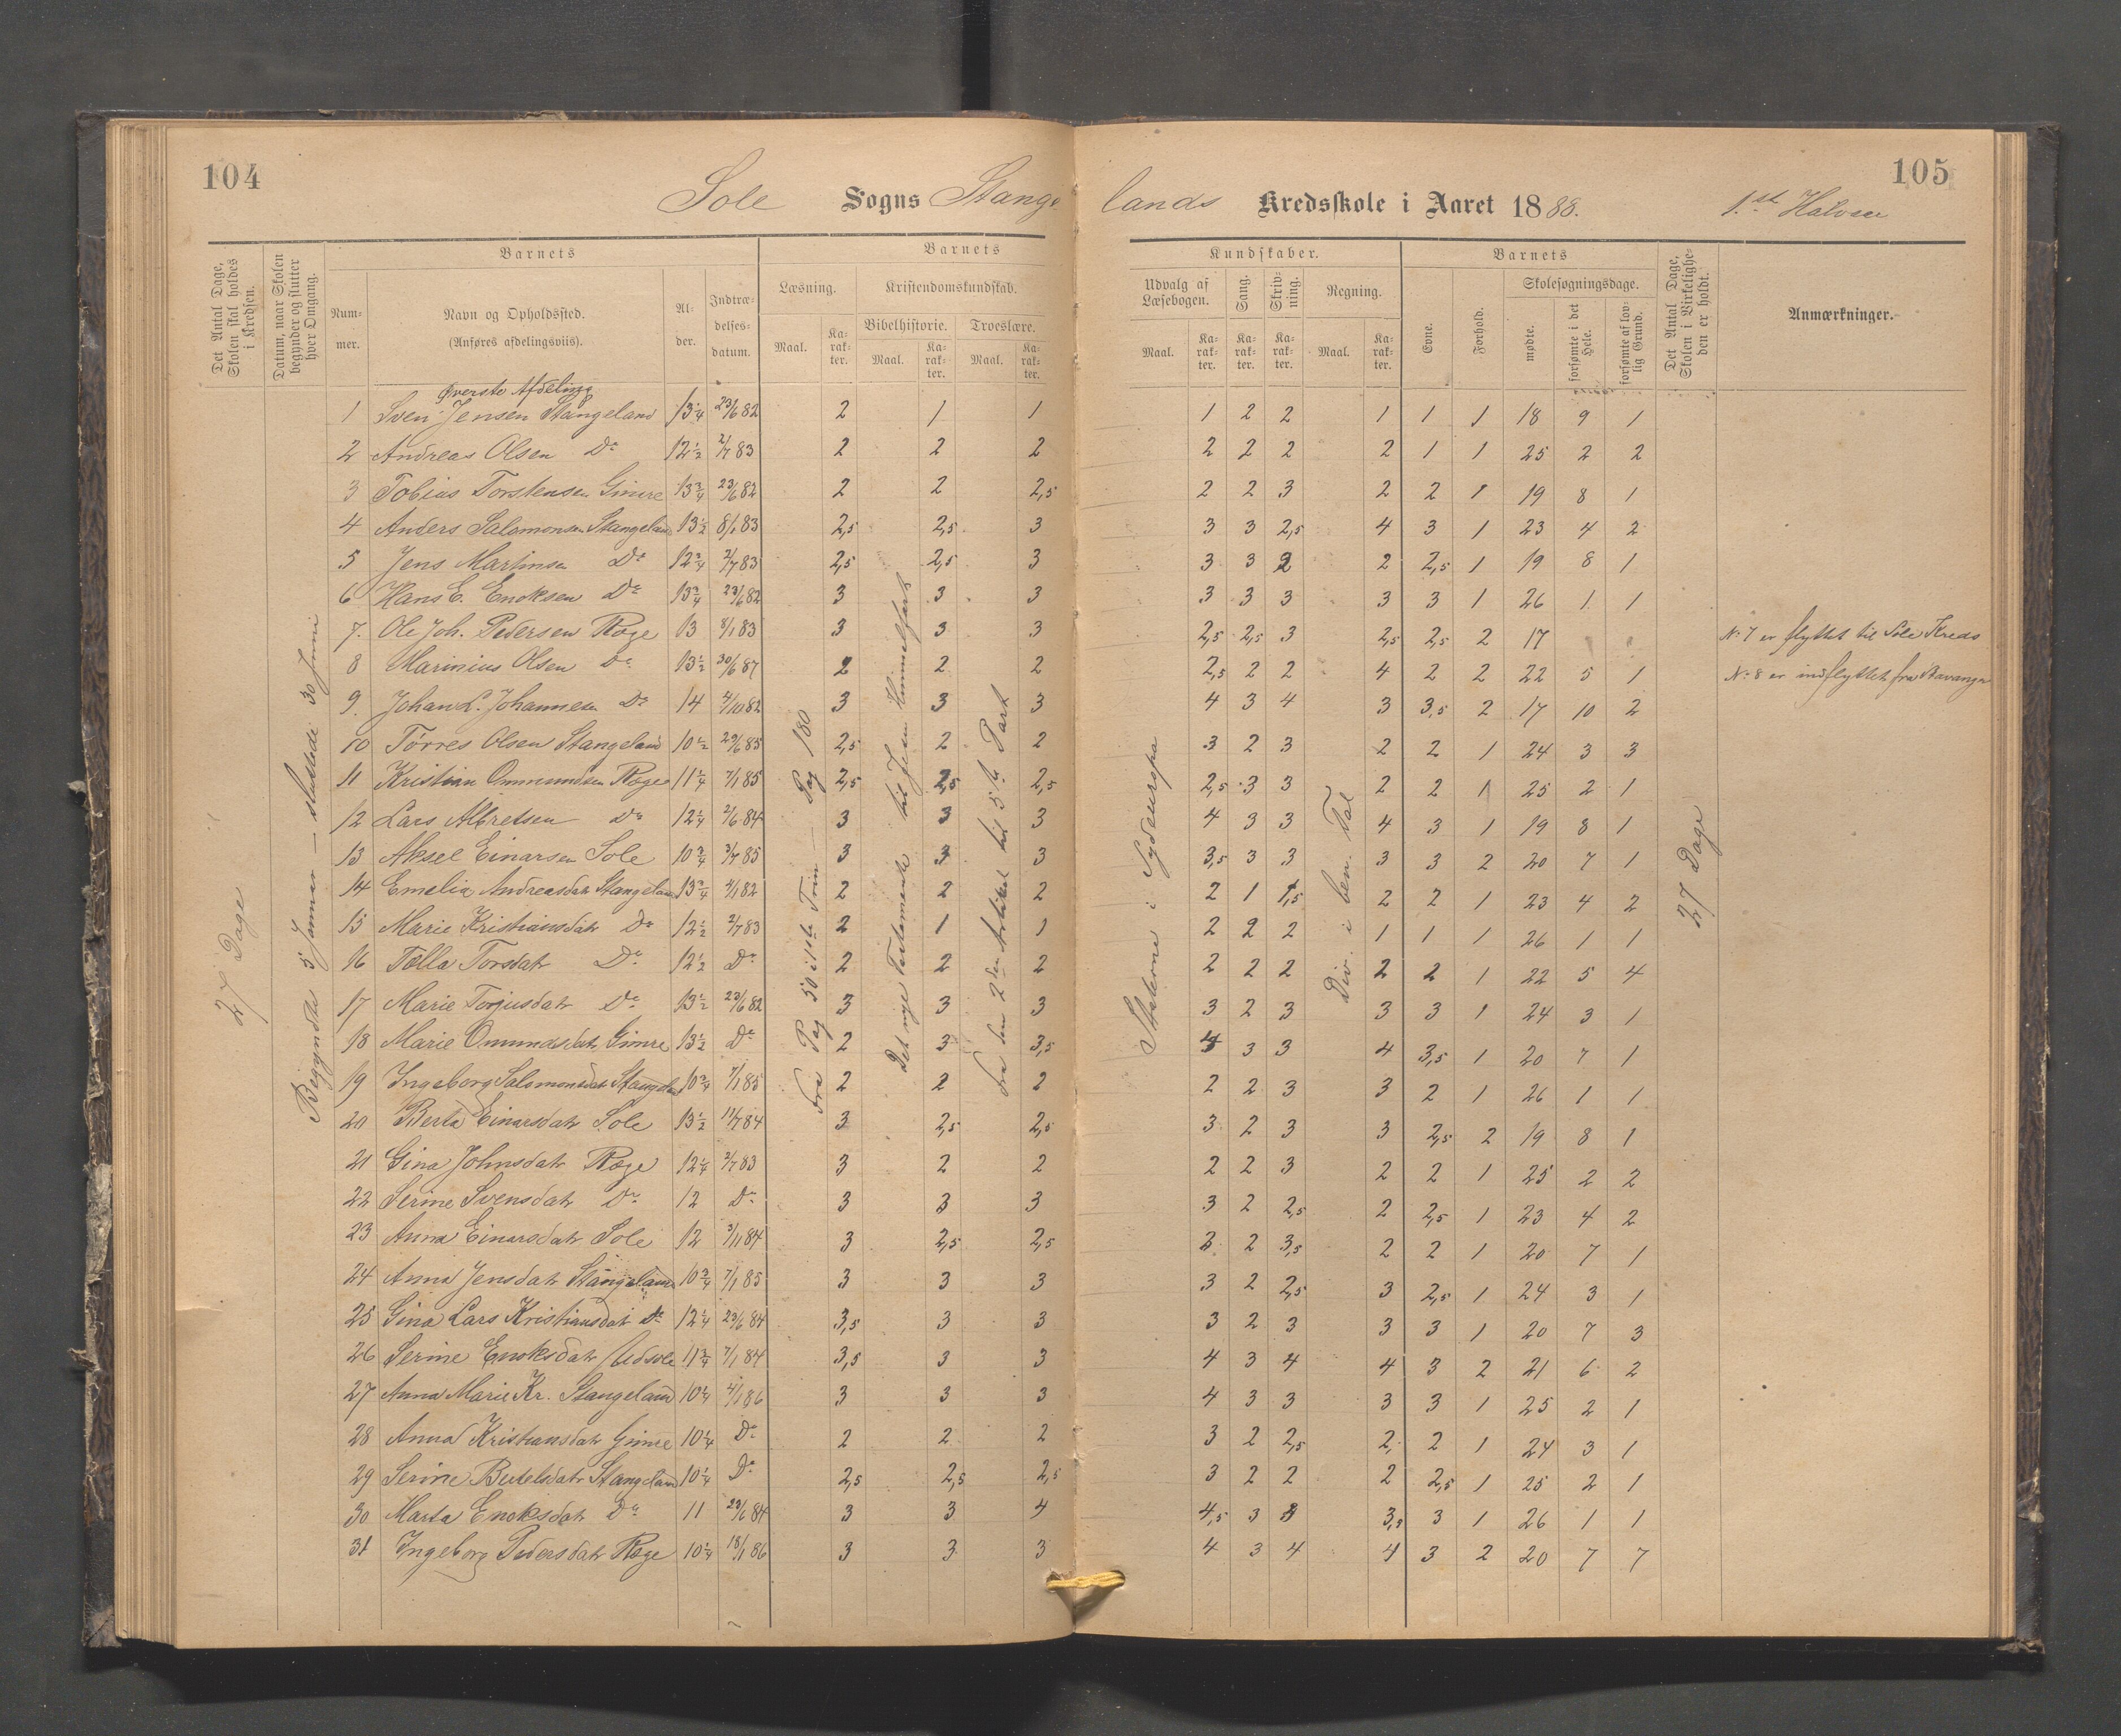 104
105
Sole Sogns Stangelands Kredsskole i Aaret 1888.
Det Antal Dage, Skolen skal holdes i Kredsen.
Datum, naar Skolen begynder og slutter hver Omgang.
Barnets
Nummer.
Navn og Opholdssted.
(Anføres afdelingsviis).
Alder.
Indtrædelsesdatum.
Barnets Kundskaber.
Læsning.
Maal.
Karakter.
Kristendomskundskab.
Bibelhistorie.
Maal.
Karakter.
Troeslære.
Maal.
Karakter.
Udvalg af Læsebogen.
Maal.
Karakter.
Sang.
Karakter.
Skrivning.
Karakter.
Regning.
Maal.
Karakter.
Barnets
Evne.
Forhold.
Skolesøgningsdage.
mødte.
forsømte i det Hele.
forsømte af lovlig Grund.
Det Antal Dage, Skolen i Virkeligheden er holdt.
Anmærkninger.
27 Dage
Begyndte 5 Januar – sluttede 30 Juni
Fra Pag 50 i 1ste Trin – Pag 180
Det nye Testamente til Jesu Himmelfart
Fra den 2den Artikel til 5te Part
Staterne i Sydeuropa
Div. i ben. Tal
27 Dage
Øverste Afdeling
1 Sven Jensen Stangeland 13 1/4 23/6 82 2 1 1 1 2 2 1 1 1 18 9 1
2 Andreas Olsen Do 12 1/2 2/7 83 2 2 2 2 2 2 2 1 1 25 2 2
3 Tobias Torstensen Gimre 13 3/4 23/6 82 2 2 2,5 2 2 3 2 2 1 19 8 1
4 Anders Salomonsen Stangeland 13 1/2 8/1 83 2,5 2,5 3 3 3 2,5 4 3 1 23 4 2
5 Jens Martinsen Do 12 3/4 2/7 83 2,5 2,5 3 3 3 2 2 2,5 1 19 8 1
6 Hans E. Enoksen Do 13 3/4 23/6 82 3 3 3 3 3 3 3 3 1 26 1 1
7. Ole Joh. Pedersen Røge 13 8/1 83 3 3 3 2,5 2,5 3 2,5 2,5 2 17 No 7 er flyttet til Sole Kreds
8 Marinius Olsen Do 13 1/2 30/6 87 2 2 2 2,5 2 2 4 2 2 22 5 1 No 8 er indflyttet fra Stavanger
9. Johan L. Johannesen Do 14 2/10 82 3 3 3 4 3 4 3 3,5 2 17 10 2
10 Tørres Olsen Stangeland 10 1/2 29/6 85 2,5 2 2 3 2 3 2 2 1 24 3 3
11 Kristian Ommundsen Røge 11 1/4 7/1 85 2,5 2,5 2,5 2,5 3 3 2 2 1 25 2 1
12 Lars Albretsen Do 12 1/4 2/6 84 3 3 3 4 3 3 4 3 1 19 8 1
13 Aksel Einarsen Sole 10 3/4 3/7 85 3 3 3 3,5 3 3 3 3 2 20 7 1
14 Emelia Andreasdatr Stangeland 13 3/4 4/1 82 2 2 2 2 1 1,5 2 2 1 23 4 2
15 Marie Kristiansdatr Do 12 1/2 2/7 83 2 1 1 2 2 2 1 1 1 26 1 1
16 Tølla Torsdatr Do 12 1/2 Do 2 2 2 2 2 2 2 2 1 22 5 4
17 Marie Torjusdatr Do 13 1/2 23/6 82 3 3 3 3 2 3 3 3 1 24 3 1
18 Marie Omundsdatr Gimre 13 1/2 Do 2 3 3,5 4 3 3 4 3,5 1 20 7 1
19 Ingeborg Salomonsdatr Stangeland 10 3/4 7/1 85 2 2 2 2 2 3 3 2 1 26 1 1
20 Berta Einarsdatr Sole 13 1/2 11/7 84 3 2,5 2,5 3 2 3 3 2,5 2 19 8 1
21 Gina Johnsdatr Røge 12 1/4 2/7 83 3 2 2 2 2 3 2 2 1 25 2 2
22 Serine Svensdatr Do 12 Do 3 3 3 3 2 2,5 2 2,5 1 23 4 2
23 Anna Einarsdatr Sole 12 3/11 84 3 2,5 2,5 2 2 3,5 2 2 1 20 7 1
24 Anna Jensdatr Stangeland 10 3/4 7/1 85 3 3 3 3 2 2,5 3 2,5 1 24 3 1
25 Gina Lars Kristiansdatr Do 12 1/4 23/6 84 3,5 3 3 3 2 3 3 3 1 20 7 3
26 Serine Enoksdatr Udsole 11 3/4 7/1 84 3,5 3 3 4 3 4 4 3 2 21 6 2
27 Anna Marie Kr. Stangeland 10 1/4 4/1 86 3 3 3 4 3 3 3 3 1 25 2 1
28 Anna Kristiansdatr Gimre 10 1/4 Do 2 2 2 3 2 2,5 2 2 1 24 3 1
29 Serine Bertelsdatr Stangeland 10 1/4 Do 2,5 2,5 2,5 3 2 2 2 2,5 1 25 2 1
30 Marta Enoksdatr Do 11 23/6 84 3 3 4 4,5 3 3 3,5 3 1 26 1 1
31 Ingeborg Pedersdatr Røge 10 1/4 18/1 86 3 3 3 4 3 4 4 3 2 20 7 7